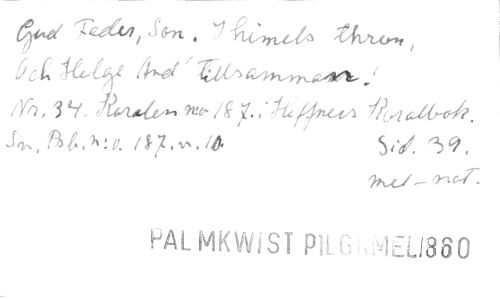 Gud Fader, Son. I himels thron,
Och Helge And' Tillsamman.!
Nr. 34. Koralen n:o 187. i Hæffners Koralbok.
Sv. Psb. n:o. 187. v. 10 Sid. 39.
mel-not.
PALMKWIST PILGRMEL1860